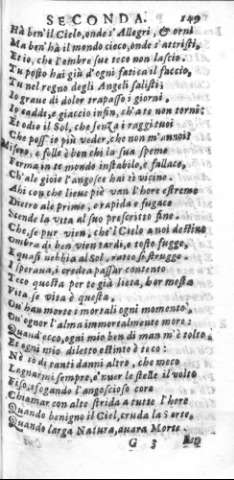 SECONDA. 149
Hà ben'il Cielo, onde s'Allegri, & orni
Ma ben'hà il mondo cieco, onde s'attristi,
Et io, che l'ombre sue teco non lascio.
Tu posto hai giù d'ogni fatica il fascio,
Tu nel regno degli Angeli salisti;
Io graue di dolor trapasso i giorni,
Io caddi, e giaccio infin, ch'à te non torni;
Et odio il Sol, che senza i raggi tuoi
Che poss'io più veder, che non m'annoi?
Misero, e folle è ben chi la sua speme
Ferma in te mondo instabile, e fallace,
Ch'a le gioie l'angosce hai sì vicine.
Ahi con che lieue piè van l'hore estreme
Dietro ale prime, e rapida e fugace
Scende la vita al suo prescritto fine.
Che, se pur vien, che'l Cielo a noi destine
Ombra di ben vien tardi, e tosto fugge,
E quasi nebbia al Sol, ratto si strugge.
I sperava, i credea passar contento
Teco questa per te già lieta, hor mesta
Vita se vita è questa.
O human morte i mortali ogni momento,
Ch'ognor l'alma immortalmente more:
Quand'ecco, ogni mio ben di man m'è tolto,
Et ogni mio diletto estinto è teco:
Nè sò di tanti danni altro, che meco
Lagnarmi sempre, e ver le stelle il volto
Fiso, sfogando l'angoscioso core
Chiamar con alte strida a tutte l'hore
Quando benigno il Ciel, cruda la Sorte,
Quando larga Natura, auara Morte.
G 3